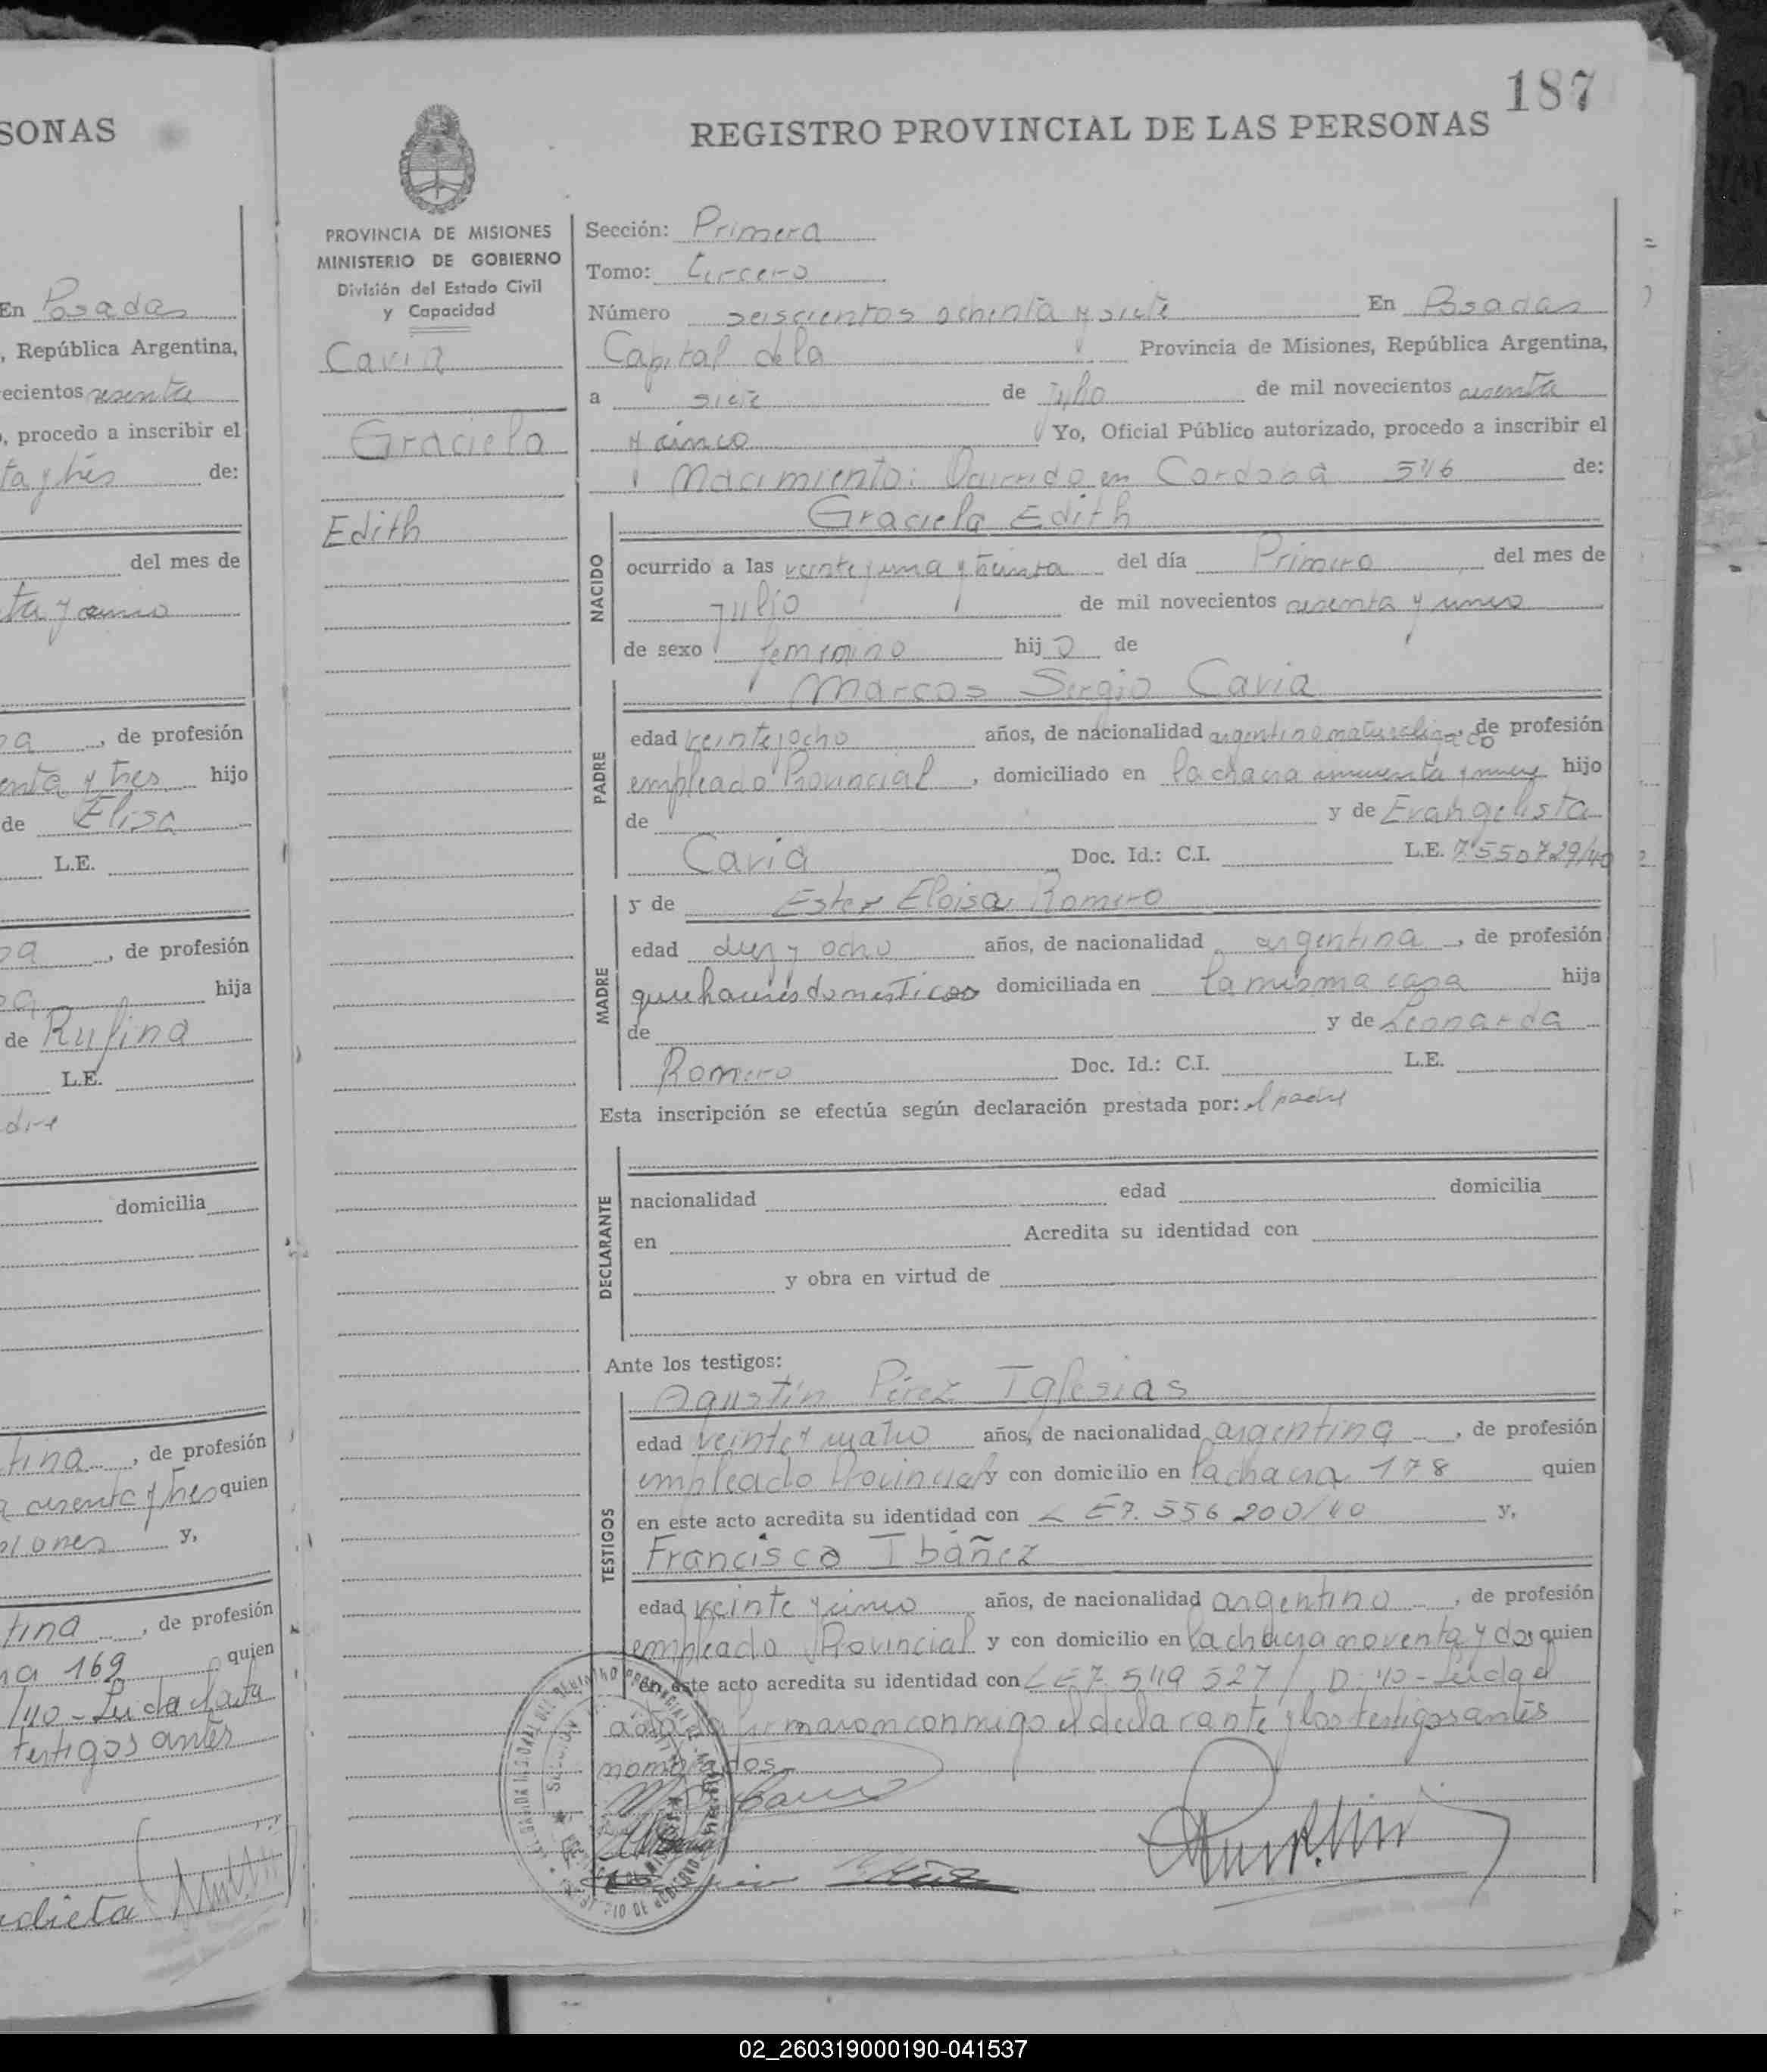 187
REGISTRO PROVINCIAL DE LAS PERSONAS
PROVINCIA DE MISIONES
MINISTERIO DE GOBIERNO
División del Estado Civil
y Capacidad
Cavia
Graciela
Edith
Sección: Primera
Tomo: tercero
Número seiscientos ochenta y siete En Posadas
Capital de la Provincia de Misiones, República Argentina,
a siete de julio de mil novecientos sesenta
y cinco Yo, Oficial Público autorizado, procedo a inscribir el
Nacimiento: Ocurrido en Cordoba de:
NACIDO
Graciela Edith
ocurrido a las veinte y una y treinta del día Primero del mes de
julio de mil novecientos sesenta y cinco
de sexo femenino hij de
PADRE
Marcos Sergio Cavia
edad veinte y ocho años, de nacionalidad argentino naturalizado, de profesión
empleado Provincial, domiciliado en la chacra cincuenta y nueve hijo
de y de Evangelista
Cavia Doc. Id.: C.I. L.E. 7.550729/40
MADRE
y de Ester Eloisa Romero
edad diez y ocho años, de nacionalidad argentina, de profesión
quehaceres domesticos domiciliada en la misma casa hija
de y de Leonarda
Romero Doc. Id.: C.I. L.E.
Esta inscripción se efectúa según declaración prestada por: el padre
DECLARANTE
nacionalidad edad domicilia
en Acredita su identidad con
y obra en virtud de
Ante los testigos:
TESTIGOS
Agustín Pérez Iglesias
edad veinte y cuatro años, de nacionalidad argentina, de profesión
empleado Provincial y con domicilio en la chacra 178 quien
en este acto acredita su identidad con L E 7.556 200/40 y,
Francisco Ibáñez
edad veinte y cinco años, de nacionalidad argentino, de profesión
empleado Provincial y con domicilio en la chacra noventa y dos quien
en este acto acredita su identidad con L E 7 549 527/ D. 40 - Leida el
acta la firmaron conmigo el declarante y los testigos antes
nombrados
SONAS
En Posadas
, República Argentina,
ecientos sesenta
, procedo a inscribir el
ta y tres de:
del mes de
ta y cinco
, de profesión
y tres hijo
de Elisa
L.E.
, de profesión
hija
de Rufina
L.E.
domicilia
tina, de profesión
y tres quien
iones y,
tina, de profesión
169 quien
/40 - Leida el acta
testigos antes
02_260319000190-041537